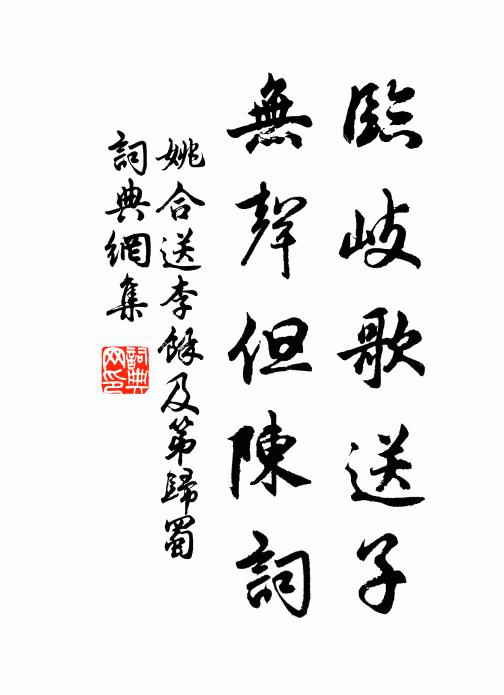 臨岐歌送子
無聲但陳詞
姚合送李餘及第歸蜀
詞典網集
詞典
网印